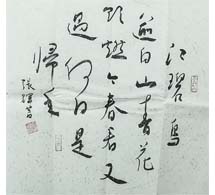 江碧鳥
逾白山青花
欲燃今春看又
過何日是
歸年